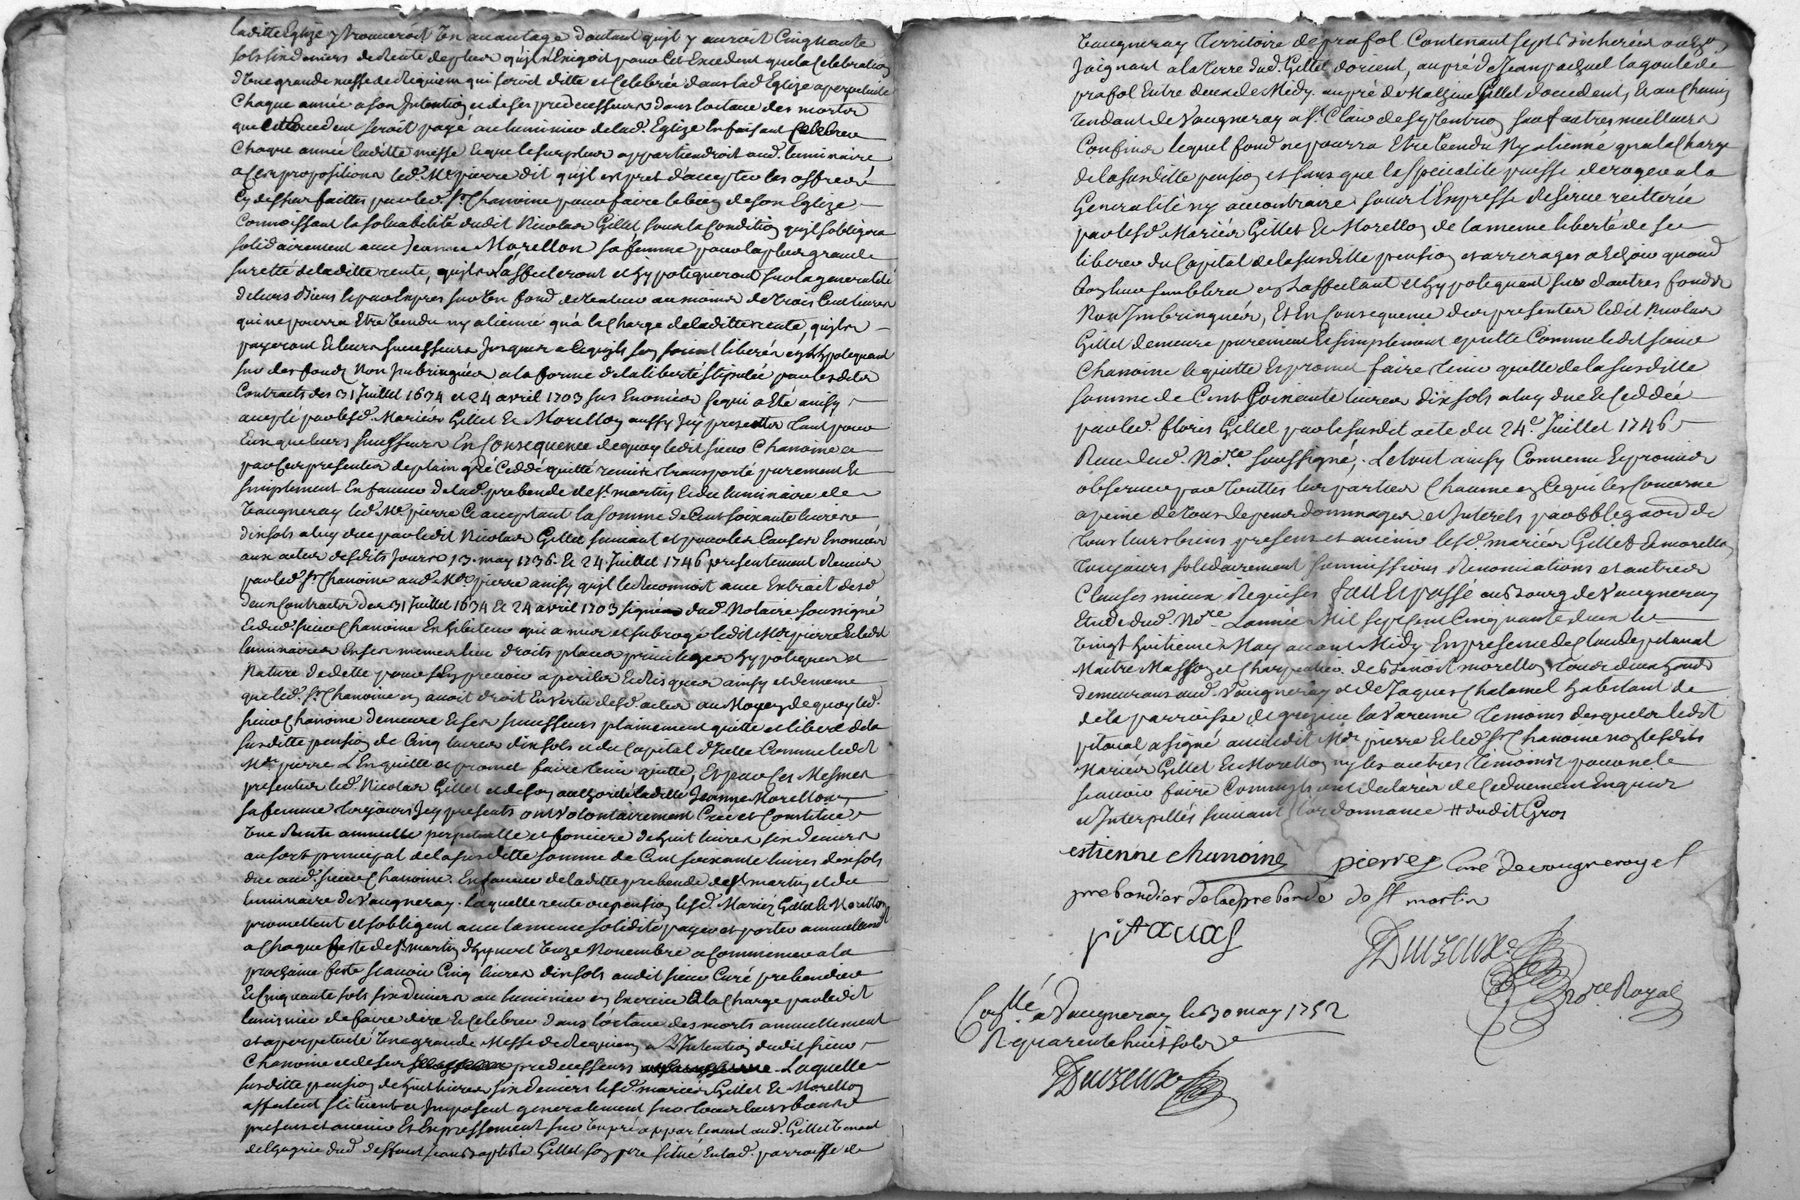 laditte Eglize y trouveroit un avantage d'autant qu'il y auroit Cinquante
sols six deniers de rente de plus qu'il n'Exigoit pour cet Excedent que la Celebration
d'une grande messe de Requiem qui seroit ditte et Celebrée dans lad. Eglize a perpetuité
Chaque année a son Intention et de ses predecesseurs dans l'octave des morts
que cet Excedent seroit payé au luminier de lad. Eglize en faisant Celebrer
Chaque année laditte messe et que le surplus appartiendroit aud. luminaire
a Ces propositions led. Mre pierre dit qu'il est pret d'accepter les offres
Cy dessus faittes par led. Sr Chanoine pour faire le bien de son Eglize
Connoissant la solvabilité dudit Nicolas Gillet sous la Condition qu'il s'obligera
solidairement avec Jeanne Morellon sa femme pour la plus grande
sureté de laditte rente, qu'ils l'affecteront et hypotequeront sur la generalité
de leurs Biens et par Exprès sur un fond de valeur au moins de trois Cent livres
qui ne pourra Etre vendu ny aliené qu'a la Charge de laditte rente, qu'ils
payeront et leurs successeurs jusques a ce qu'ils s'en soient liberés en hypotequant
sur des fonds Non Imbringués a la forme de la liberté stipulée par lesdits
Contracts des 31 Juillet 1634 et 24 avril 1703 sus Enoncés ce qui a Eté ainsy
accepté par lesd. Mariés Gillet et Morellon aussy Icy presents tant pour
Eux que leurs successeurs En Consequence de quoy ledit sieur Chanoine a
par Ces presentes de plain gré Ceddé quitté remis transporté purement et
simplement En faveur de lad. prebende de St martin et du luminaire de
Vaugneray led. Mre pierre Ce acceptant la somme de Cent soixante livres
dix sols a luy due par ledit Nicolas Gillet suivant et pour les Causes Enoncées
aux actes desdits Jours 13 may 1736 et 24 Juillet 1746 presentement remis
par led. Sr Chanoine aud. Mre pierre ainsy qu'il le Reconnoit avec Extrait desd.
deux Contracts des 31 Juillet 1634 et 24 avril 1703 signés dud. Notaire soussigné
et led. sieur Chanoine En Exhibiteur qui a mis et subrogé ledit Mre pierre et ledit
luminaire En ses mêmes lieu droits places privileges hypoteques et
Nature de dette pour s'En prevaloir a perils et Risques ainsy et de meme
que led. Sr Chanoine en avoit droit En vertu desd. actes au Moyen de quoy led.
sieur Chanoine demeure et ses successeurs plainement quitte et liberé de la
susditte pension de Cinq livres dix sols et du Capital d'Icelle Comme ledit
Mre pierre l'En quitte et promet faire tenir quitte, Et par Ces Mesmes
presentes led. Nicolas Gillet et de son authorité laditte Jeanne Morellon
sa femme toujours Icy presents ont volontairement Créé et Constitué
Une Rente annuelle perpetuelle et fonciere de huit livres six deniers
au sort principal de la susditte somme de Cent soixante livres dix sols
due aud. sieur Chanoine En faveur de laditte prebende de St martin et du
luminaire de Vaugneray. laquelle rente ou pension lesd. Mariés Gillet et Morellon
promettent et s'obligent avec la meme solidité payer et porter annuellement
a Chaque feste de St martin d'hyver onze Novembre a Commencer a la
prochaine feste sçavoir Cinq livres dix sols audit sieur Curé prebendier
Et Cinquante sols six deniers au luminier en Exercice a la Charge par ledit
luminier de faire dire et Celebrer dans l'octave des morts annuellement
et a perpetuité une grande Messe de Requiem a l'Intention dudit sieur
Chanoine et de ses predecesseurs Laquelle
susditte pension de huit livres six deniers lesd. mariés Gillet et Morellon
affectent situent et Imposent generalement sur tous leurs biens
presents et avenir Et Expressement sur un pré appartenant aud. Gillet Venant
de l'hoirie dud. deffunt Jean Baptiste Gillet son pere situé En lad. parroisse de
Vaugneray Territoire de prafol Contenant sept Bicherées ou Env.
Joignant a la terre dud. Gillet d'orient, au pré de Jean pasquel la goute de
prafol Entre deux de Midy. au pré de Mathieu Gillet d'occident, Et au Chemin
tendant de Vaugneray a St Clair de sy tenbise sauf autres meilleurs
Confins lequel fond ne pourra Etre vendu Ny aliéné qu'a la Charge
de la susditte pension et sans que la specialité puisse deroger a la
Generalité ny au contraire sous l'Expresse reserve reitterée
par lesd. Mariés Gillet Et Morellon de la meme liberté de se
liberer du Capital de la susditte pension et arrerages a Echoir quand
bon leur semblera en affectant et hypotequant sur d'autres fonds
Non Imbringués, Et En Consequence des presentes ledit Nicolas
Gillet demeure purement Et simplement quitte Comme ledit sieur
Chanoine le quitte Et promet faire tenir quitte de la susditte
somme de Cent soixante livres dix sols a luy due et Ceddée
par led. floris Gillet par le susdit acte du 24e Juillet 1746
Reçu dud. Nore soussigné. Le tout ainsy Convenu Et promis
observer par touttes les parties Chacune en Ce qui les Concerne
a peine de tous depens dommages et Interets par obligaon de
tous leurs biens presents et avenir lesd. mariés Gillet et Morellon
toujours solidairement soumissions Renonciations et autres
Clauses mieux Requises fait Et passé au Bourg de Vaugneray
Etude dud. Nore L'année Mil sept Cent Cinquante deux le
Vingt huitieme May avant Midy En presence de Claude pitaval
Maitre Masson et Charpentier de Benoit morellon
demeurans aud. Vaugneray et de Jaques Chatamel habitant de
de la parroisse de grezieu la Varenne Temoins desquels ledit
pitaval a signé avec ledit Mre pierre et led. Sr Chanoine non lesdits
Mariés Gillet Et Morellon ny les autres temoins pour ne le
sçavoir faire Comme ils ont declarés de Ce duement Enquis
et Interpellés suivant l'ordonnance # dudit Gros
estienne chanoine pierre Curé de vaugneray et
prebandier de la prebande de St martin
pitaval
Duzeux
Nore Royal
Conllé a Vaugneray le 30 may 1752
R quarente huit sols
Duzeux